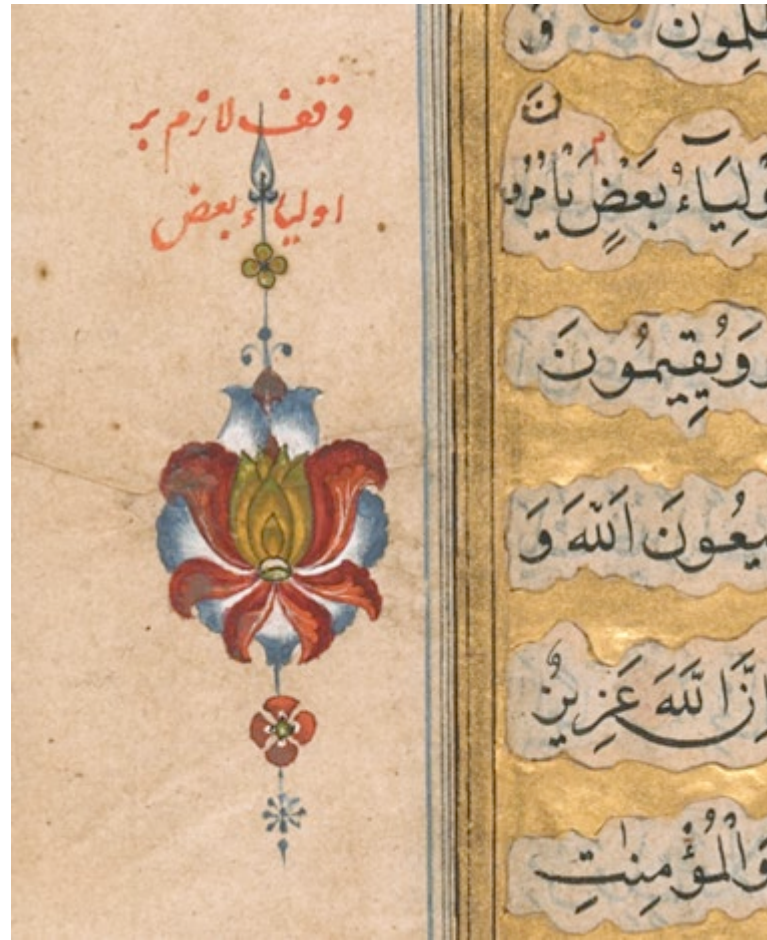 وقف لازم بر
اولیاء بعض
وَ
وْلِيَاءُ بَعْضٍ يَأْمُرُونَ
وَيُقِيمُونَ
يعُونَ اَللّٰهَ وَ
اِنَّ اللّٰهَ عَزِيزٌ
وَالْمُؤْمِنٰتِ